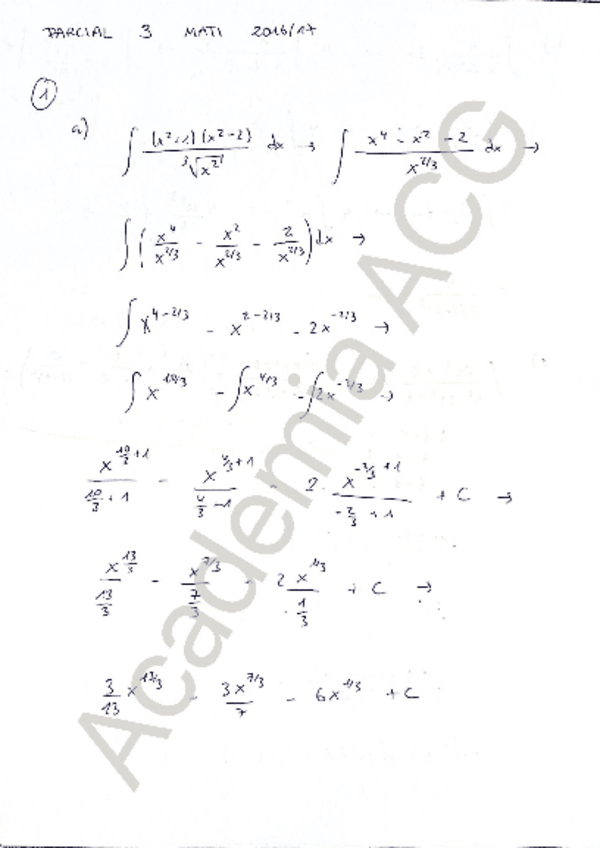 PARCIAL 3 MATI 2016/17
1
a) ∫ (x²+1)(x²-2) / ³√x² dx → ∫ x⁴ - x² - 2 / x^2/3 dx →
∫ ( x⁴/x^2/3 - x²/x^2/3 - 2/x^2/3 ) dx →
∫ x^4-2/3 - x^2-2/3 - 2x^-2/3 →
∫ x^10/3 - ∫ x^4/3 - ∫ 2x^-2/3 →
x^10/3+1 / 10/3+1 - x^4/3+1 / 4/3+1 - 2 · x^-2/3+1 / -2/3+1 + C →
x^13/3 / 13/3 - x^7/3 / 7/3 - 2 x^1/3 / 1/3 + C →
3/13 x^13/3 - 3x^7/3 / 7 - 6x^1/3 + C
Academia ACG